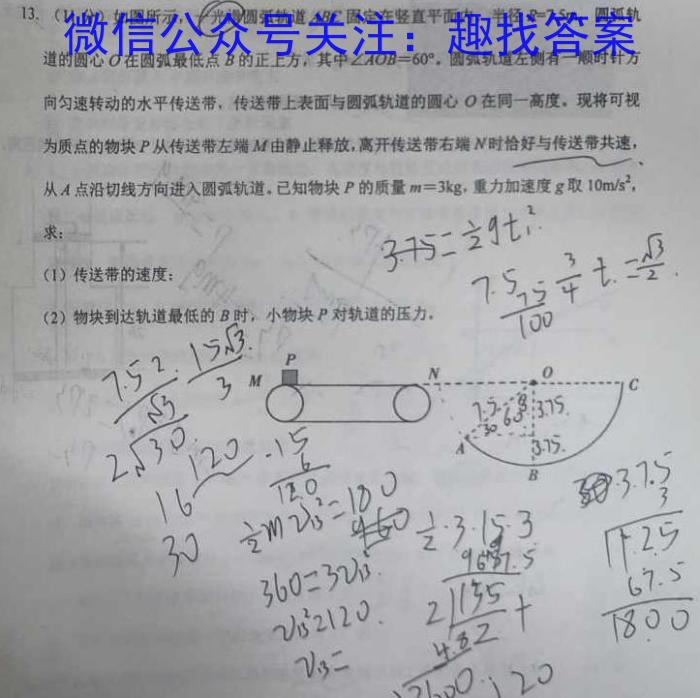 13.（11分）如图所示，一光滑圆弧轨道ABC固定在竖直平面内，半径R=7.5m，圆弧轨
微信公众号关注：趣找答案
道的圆心O在圆弧最低点B的正上方，其中∠AOB=60°。圆弧轨道左侧有一顺时针方
向匀速转动的水平传送带，传送带上表面与圆弧轨道的圆心O在同一高度。现将可视
为质点的物块P从传送带左端M由静止释放，离开传送带右端N时恰好与传送带共速，
从A点沿切线方向进入圆弧轨道。已知物块P的质量m=3kg，重力加速度g取10m/s²，
求：
3.75=½gt₁²
（1）传送带的速度；
7.5 3/4 t₁=√3/2
75/100
（2）物块到达轨道最低的B时，小物块P对轨道的压力。
7.5 2 15√3/3
√3
P
M N O C
7.5 60 3.75
30 3.75
A
B
2√30
120 -15
6
180
16
30
½mv_B²=180
½·3·15·3
3.75
3
11.25
67.5
1800
360=3v_B²
v_B²=120
v_B=
2 135